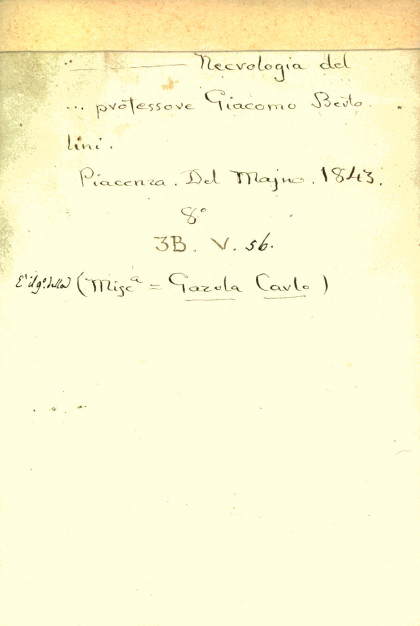 ——— Necrologia del
... professore Giacomo Berto
lini.
Piacenza. Del Majno. 1843.
8°
3B. V. 56.
È il 9° della (Misc.ª = Gazola Carlo)